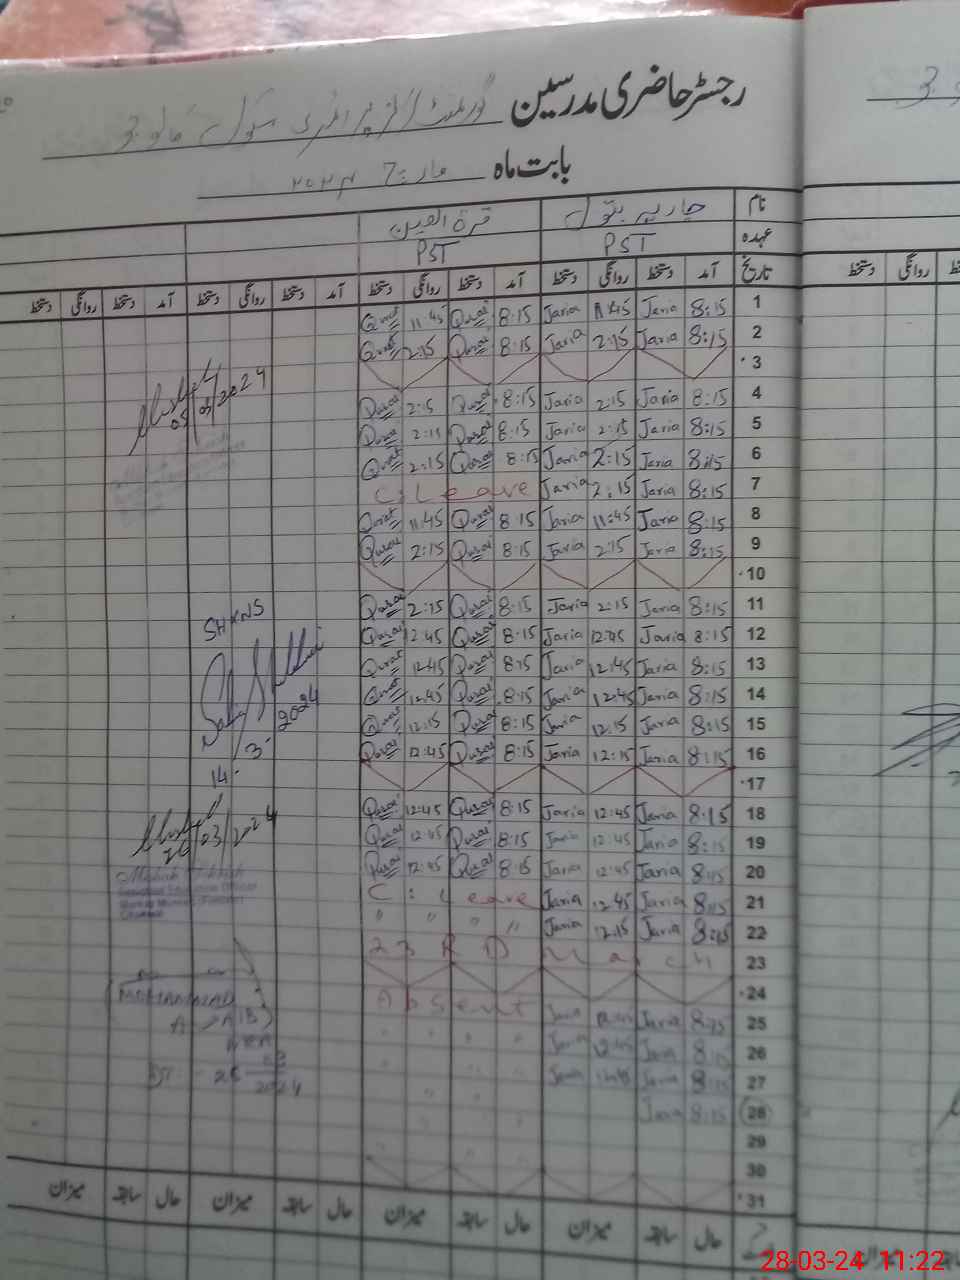 رجسٹر حاضری مدرسین گورنمنٹ گرلز پرائمری سکول
بابت ماہ مارچ ۲۰۲۴
نام جاریہ بتول قرۃ العین
عہدہ PST PST
تاریخ آمد دستخط روانگی دستخط آمد دستخط روانگی دستخط آمد دستخط روانگی دستخط آمد دستخط روانگی دستخط
1 8:15 Jaria 11:45 Jaria 8:15 Qurat 11:45 Qurat
2 8:15 Jaria 2:15 Jaria 8:15 Qurat 2:15 Qurat
3
4 8:15 Jaria 2:15 Jaria 8:15 Qurat 2:15 Qurat
05/03/2024
5 8:15 Jaria 2:15 Jaria 8:15 Qurat 2:15 Qurat
6 8:15 Jaria 2:15 Jaria 8:15 Qurat 2:15 Qurat
7 8:15 Jaria 2:15 Jaria C:Leave
8 8:15 Jaria 11:45 Jaria 8:15 Qurat 11:45 Qurat
9 8:15 Jaria 2:15 Jaria 8:15 Qurat 2:15 Qurat
10
11 8:15 Jaria 2:15 Jaria 8:15 Qurat 2:15 Qurat
12 8:15 Jaria 12:45 Jaria 8:15 Qurat 12:45 Qurat
13 8:15 Jaria 12:45 Jaria 8:15 Qurat 12:45 Qurat
14 8:15 Jaria 12:45 Jaria 8:15 Qurat 12:45 Qurat
15 8:15 Jaria 12:15 Jaria 8:15 Qurat 12:15 Qurat
16 8:15 Jaria 12:15 Jaria 8:15 Qurat 12:45 Qurat
14-3-2024
17
18 8:15 Jaria 12:45 Jaria 8:15 Qurat 12:45 Qurat
19 8:15 Jaria 12:45 Jaria 8:15 Qurat 12:45 Qurat
20 8:15 Jaria 12:45 Jaria 8:15 Qurat 12:45 Qurat
20/03/2024
21 8:15 Jaria 12:45 Jaria C:Leave
22 8:15 Jaria 12:15 Jaria " " " "
23 23 RD March
24
25 8:15 Jaria 12:45 Jaria Absent
MOHAMMAD
26 8:15 Jaria 12:45 Jaria " "
27 8:15 Jaria 12:45 Jaria " "
2024
28 8:15 Jaria " "
29
30
31
حال سابقہ میزان حال سابقہ میزان حال سابقہ میزان حال سابقہ میزان
روانگی دستخط
28-03-24 11:22